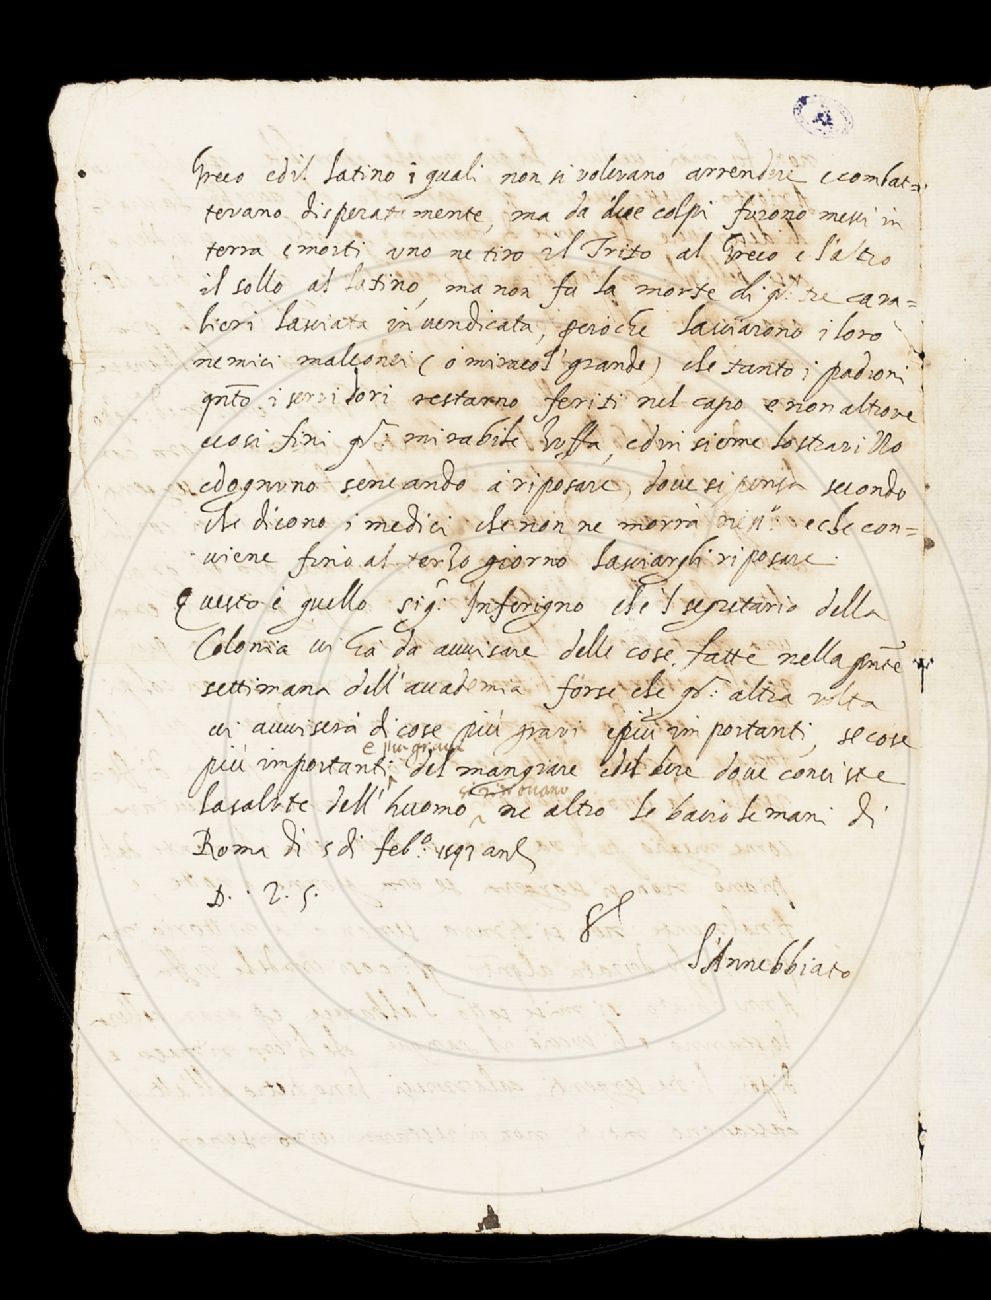 Greco ed il latino i quali non si volevano arrendere e combat=
tevano disperatamente, ma da due colpi furono messi in
terra e morti uno ne tiro il Trito al Greco e l'altro
il sollo al latino, ma non fu la morte di q.ti tre cava=
lieri lasciata invendicata, peroche lasciarono i loro
nemici malconci (o miracol grande) che tanto i padroni
qnto i servidori restarno feriti nel capo e non altrove
e cosi fini q.ta mirabile zuffa, ed insieme lo stravizzo
ed ognuno sene ando a riposare, dove si pensa secondo
che dicono i medici che non ne morrà e che con=
viene fino al terzo giorno lasciargli riposare.
Questo è quello sig.r Inferigno che l segretario della
Colonia vi ha da avvisare delle cose fatte nella pnte
settimana dell'accademia forse che q.a altra volta
vi avviserà di cose più gravi e più importanti, se cose
e piu gravi
più importanti del mangiare e del bere dove consiste
si trovano
la salute dell'huomo ne altro le bacio le mani di
Roma di 5 di feb.o 1592 ant
D. V. S.
L'Annebbiato